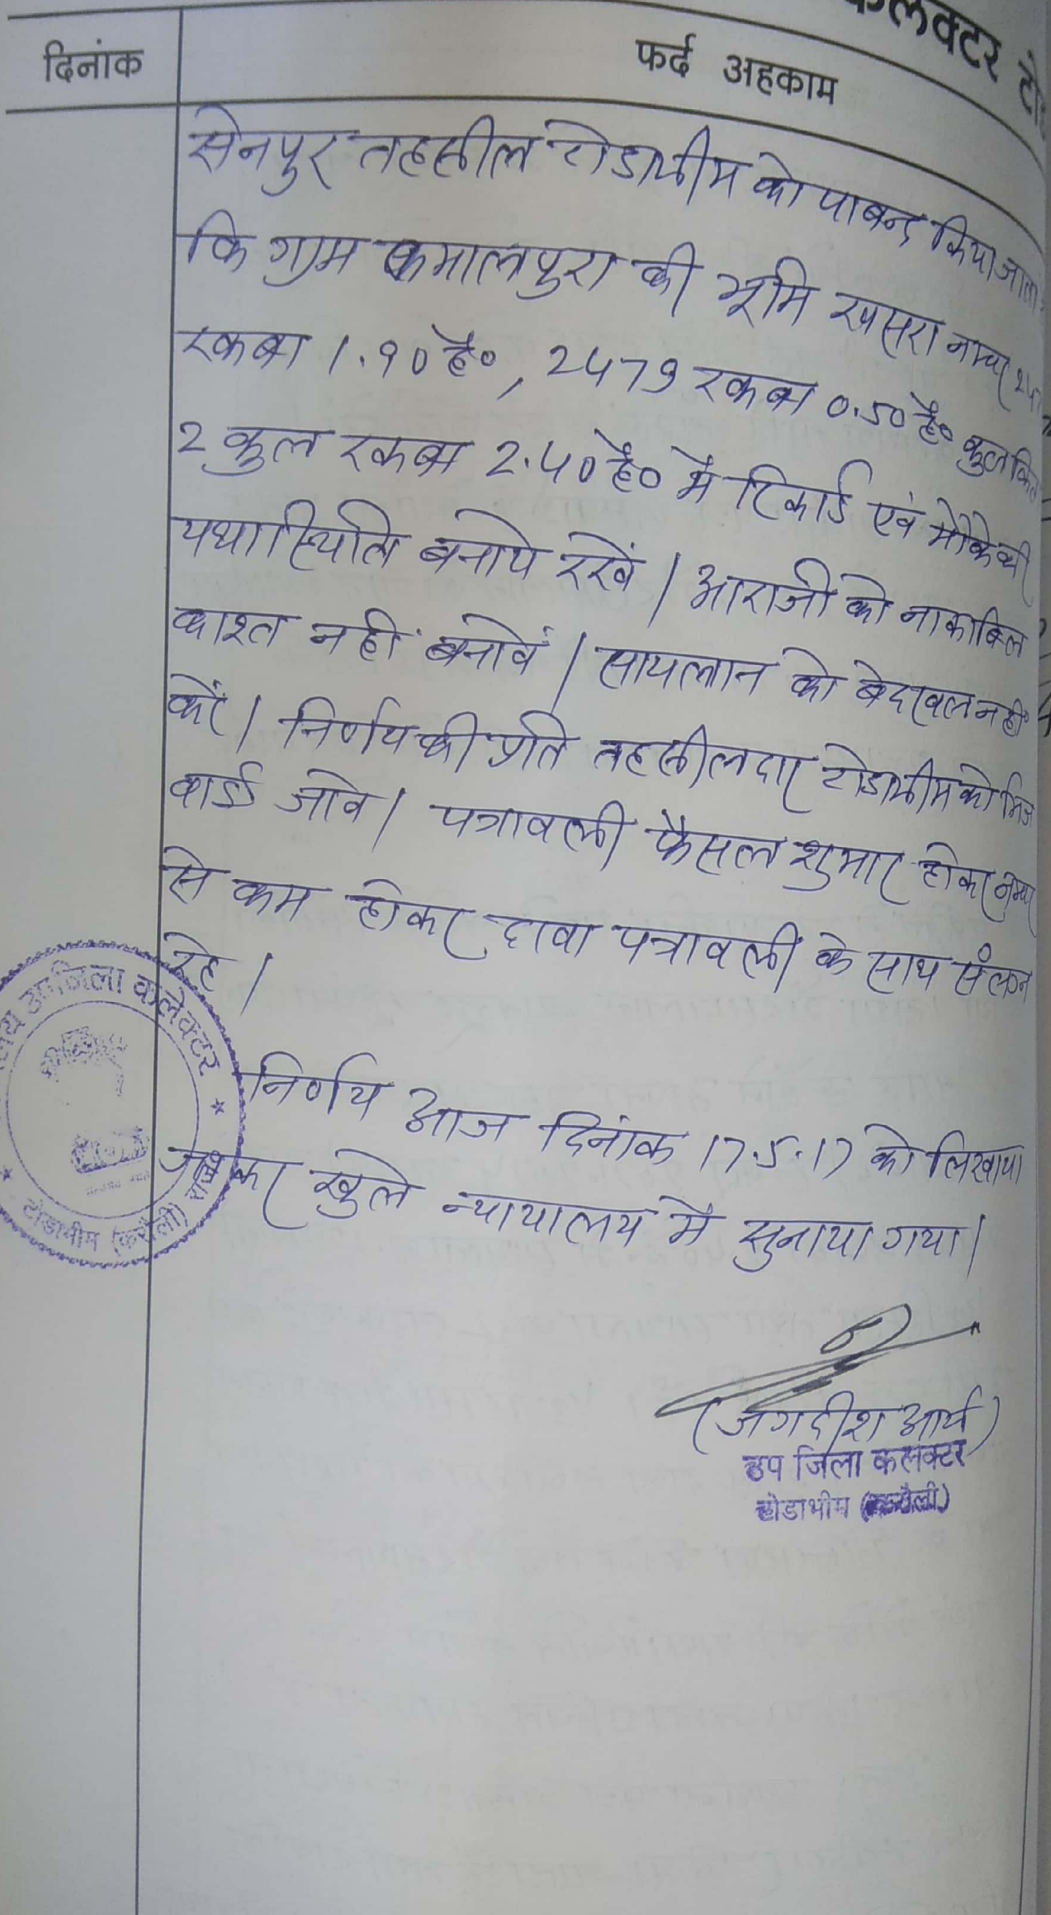 कलक्टर
दिनांक
फर्द अहकाम
सेनपुर तहसील टोडाभीम को पाबन्द किया जाता
कि ग्राम कमालपुरा की भूमि खसरा नम्बर
रकबा 1.90 है०, 2479 रकबा 0.50 है० कुल किता
2 कुल रकबा 2.40 है० मे रिकार्ड एवं मौके की
यथास्थिति बनाये रखें। आराजी को नाकाबिल
काश्त नहीं बनावें। सायलान को बेदखल नहीं
करें। निर्णय की प्रति तहसीलदार टोडाभीम को भिज
वाई जावे। पत्रावली फैसल शुमार होकर नम्बर
से कम होकर दावा पत्रावली के साथ संलग्न
रहे।
निर्णय आज दिनांक 17.5.17 को लिखाया
जाकर खुले न्यायालय मे सुनाया गया।
(जगदीश आर्य)
उप जिला कलक्टर
टोडाभीम (करौली)
उप जिला कलेक्टर
टोडाभीम (करौली)